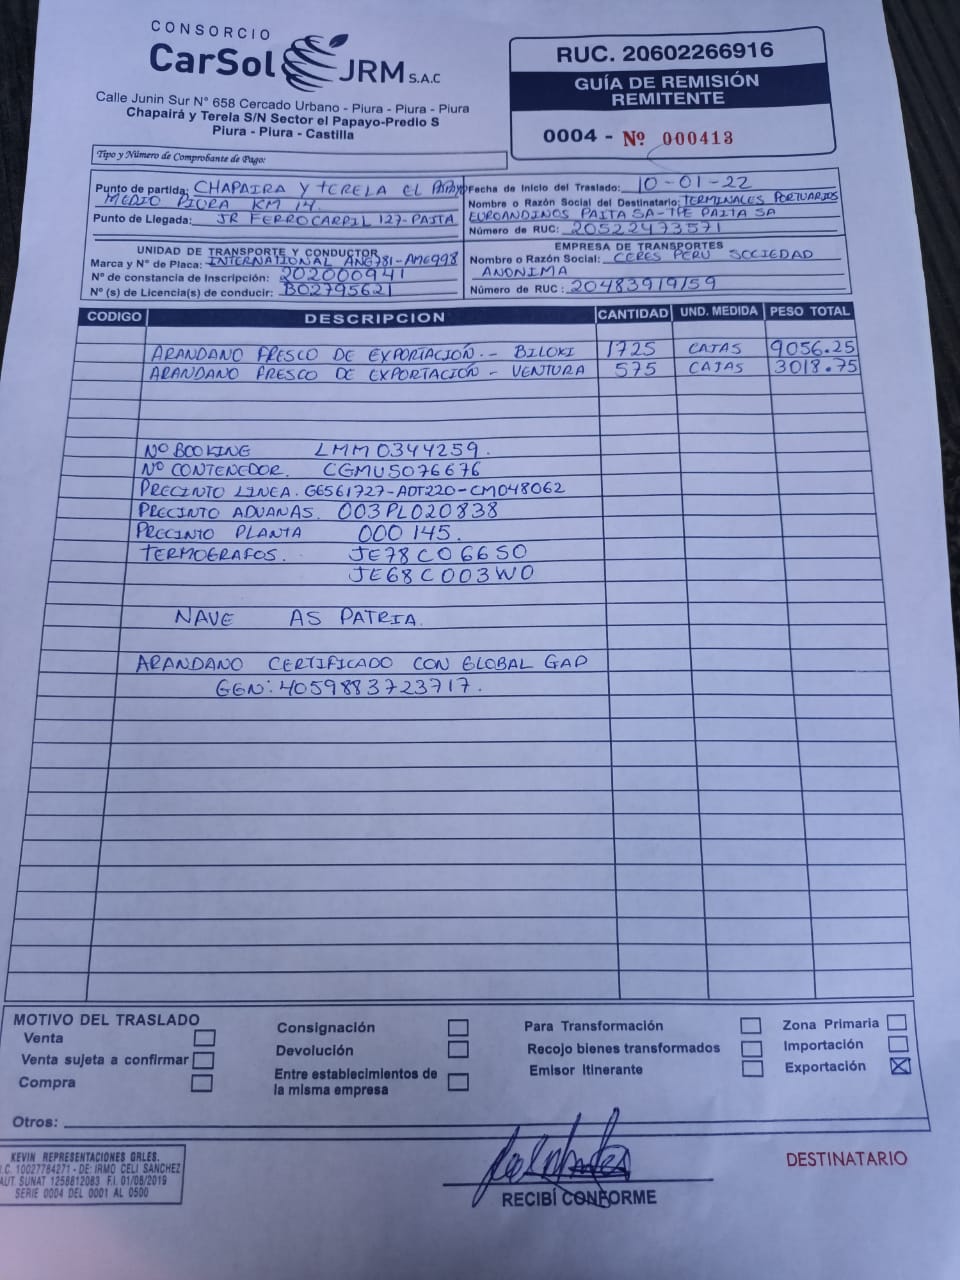 CONSORCIO
CarSol JRM S.A.C
Calle Junin Sur N° 658 Cercado Urbano - Piura - Piura - Piura
Chapairá y Terela S/N Sector el Papayo-Predio S
Piura - Piura - Castilla
RUC. 20602266916
GUÍA DE REMISIÓN
REMITENTE
0004 - Nº 000413
Tipo y Número de Comprobante de Pago:
Punto de partida: CHAPAIRA Y TERELA EL PAPAYO
MEDIO PIURA KM 14.
Punto de Llegada: JR FERROCARRIL 127-PAITA
Fecha de Inicio del Traslado: 10-01-22
Nombre o Razón Social del Destinatario: TERMINALES PORTUARIOS
EUROANDINOS PAITA SA-TPE PAITA SA
Número de RUC: 20522473571
UNIDAD DE TRANSPORTE Y CONDUCTOR
Marca y N° de Placa: INTERNATIONAL ANG781-AMG998
N° de constancia de Inscripción: 202000941
N° (s) de Licencia(s) de conducir: B02795621
EMPRESA DE TRANSPORTES
Nombre o Razón Social: CERES PERU SOCIEDAD
ANONIMA
Número de RUC: 20483919159
CODIGO DESCRIPCION CANTIDAD UND. MEDIDA PESO TOTAL
ARANDANO FRESCO DE EXPORTACIÓN.- BILOXI 1725 CAJAS 9056.25
ARANDANO FRESCO DE EXPORTACIÓN - VENTURA 575 CAJAS 3018.75
Nº BOOKING LMM0344259.
Nº CONTENEDOR. CGMU5076676
PRECINTO LINEA. GE561727-ADT220-CM048062
PRECINTO ADUANAS. 003PL020838
PRECINTO PLANTA 000145.
TERMOGRAFOS. JE78C066S0
JE68C003W0
NAVE AS PATRIA.
ARANDANO CERTIFICADO CON GLOBAL GAP
GGN: 4059883723717.
MOTIVO DEL TRASLADO
Venta
Venta sujeta a confirmar
Compra
Consignación
Devolución
Entre establecimientos de
la misma empresa
Para Transformación
Recojo bienes transformados
Emisor Itinerante
Zona Primaria
Importación
Exportación
Otros:
KEVIN REPRESENTACIONES GRLES.
.C. 10027784271 - DE: IRMO CELI SANCHEZ
AUT. SUNAT 1258812083 F.I. 01/08/2019
SERIE 0004 DEL 0001 AL 0500
RECIBÍ CONFORME
DESTINATARIO